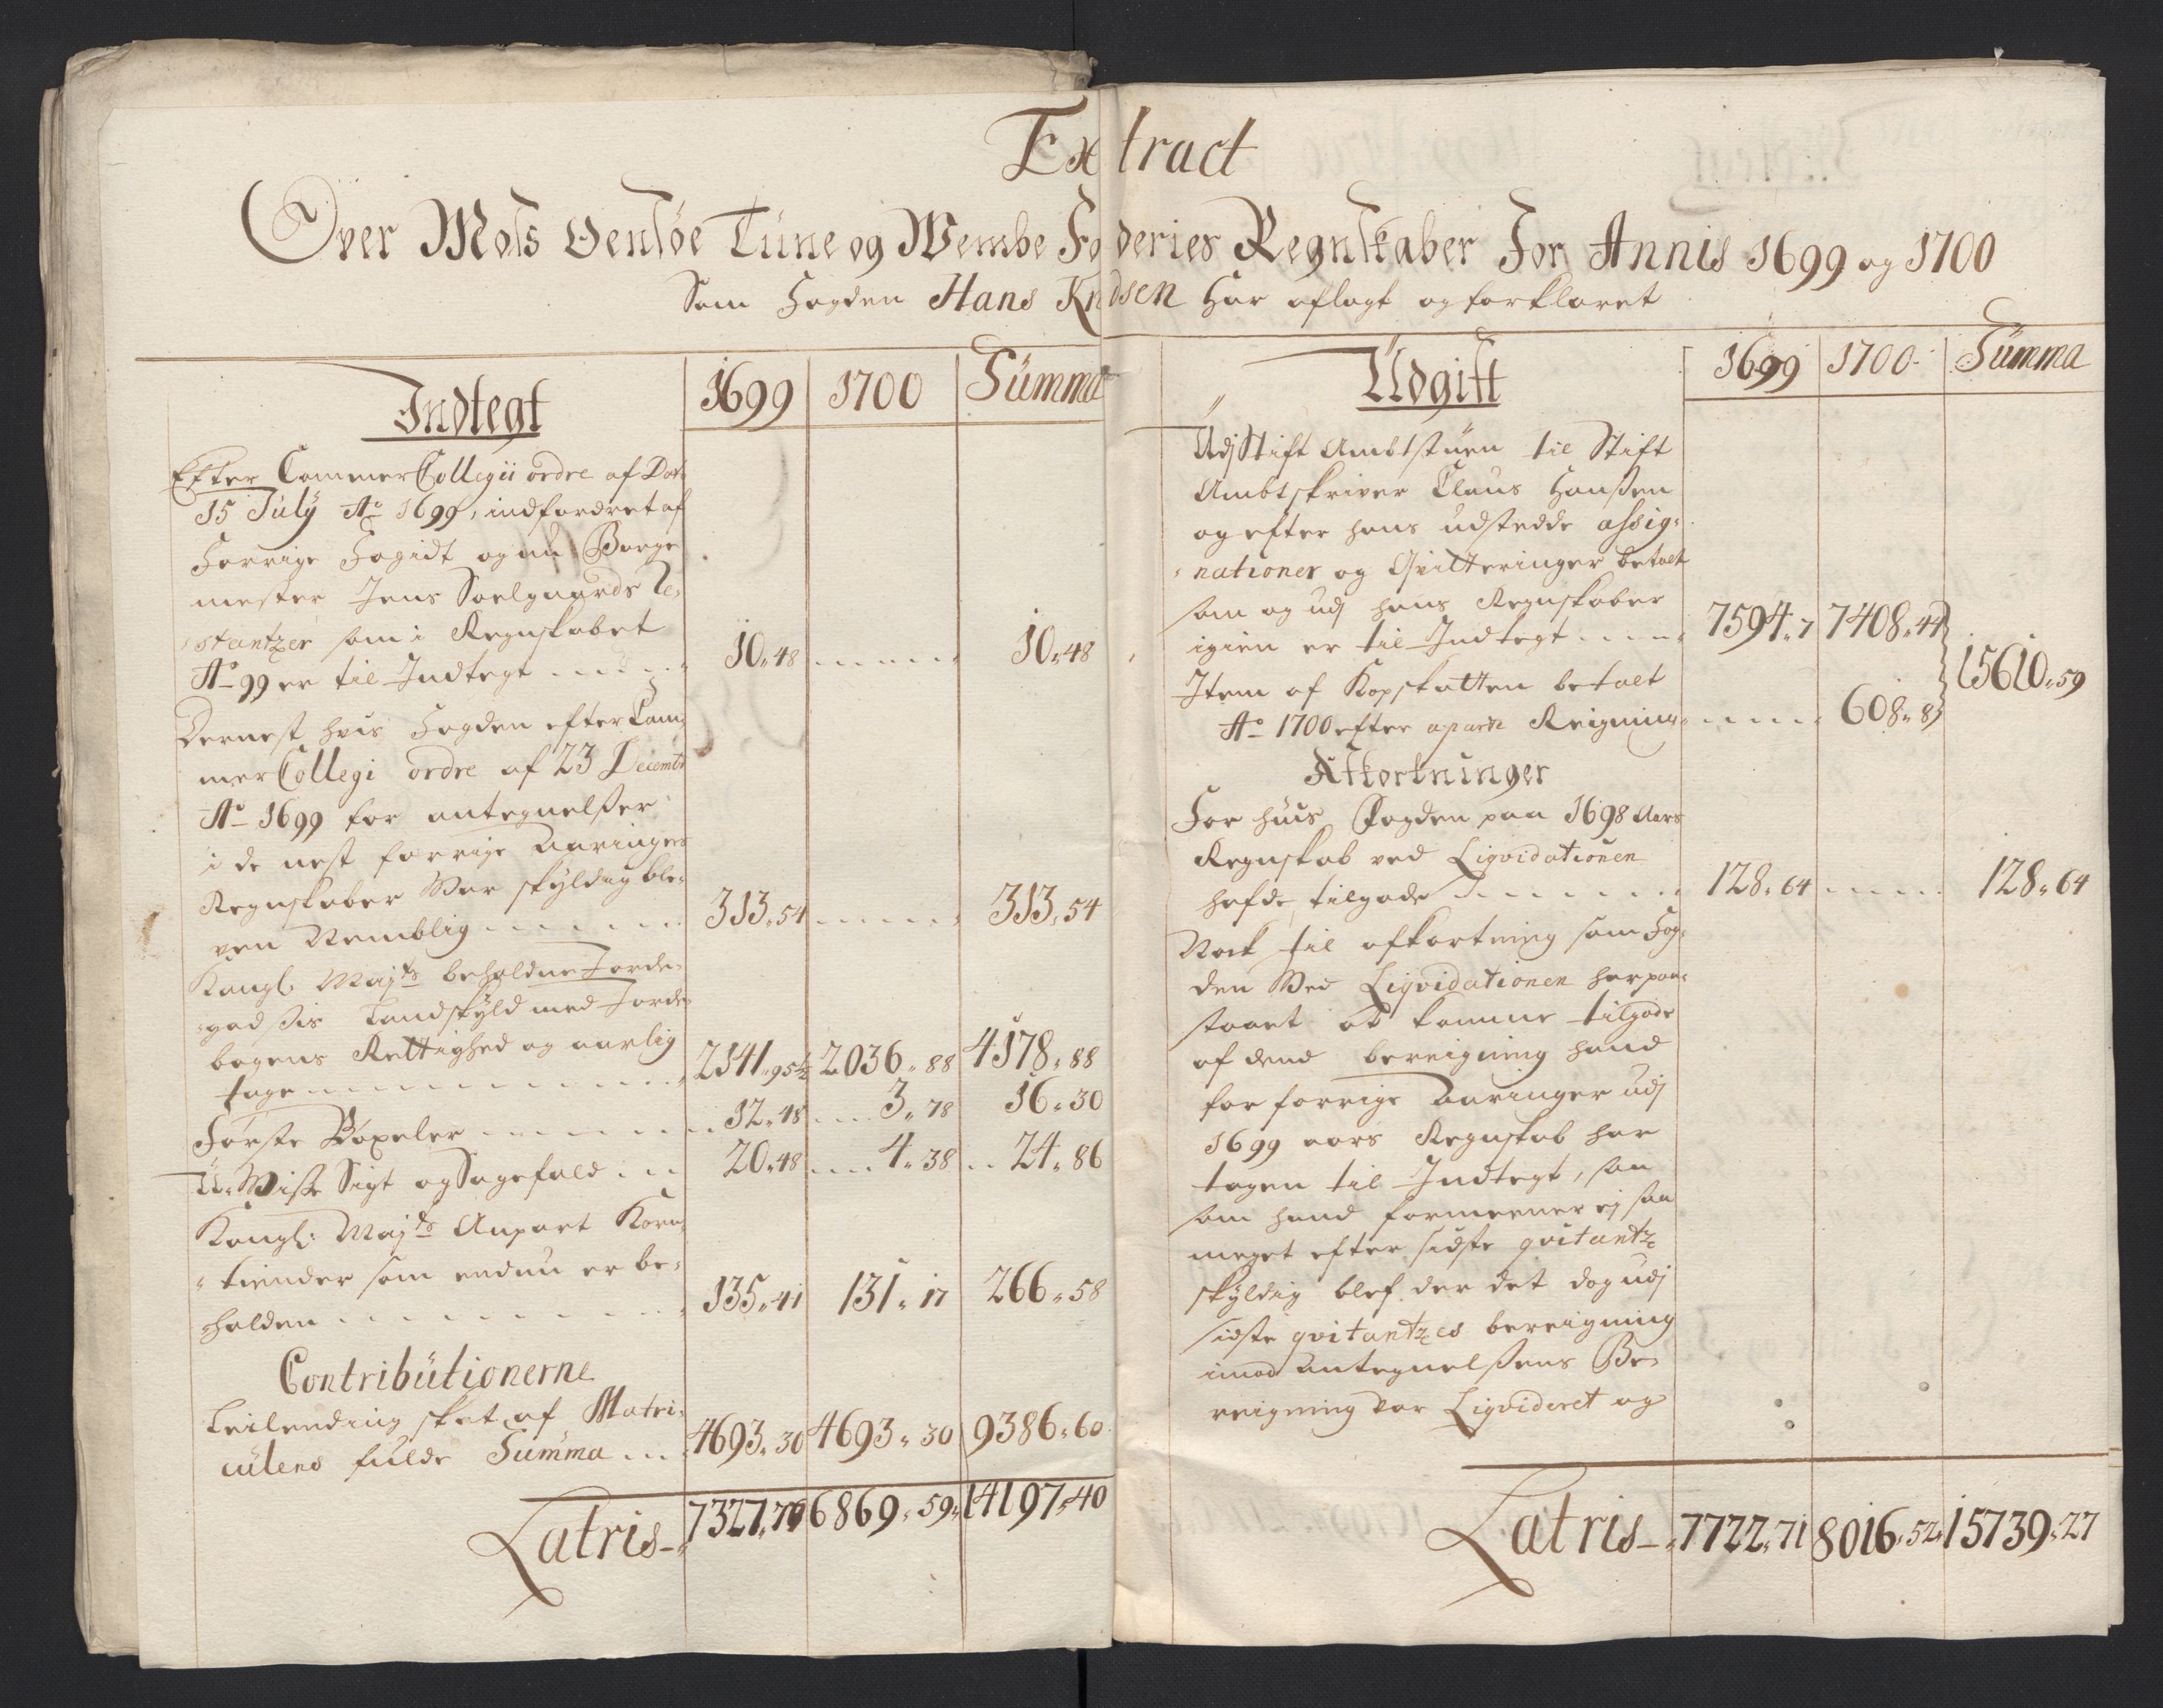 Extract
Over Mois Oensøe Tüne og Wembe Foderies Regnskaber For Annis 1699 og 1700
Som Fogden Hans Kndsen Har aflagt og forklaret
Indtegt 1699 1700 Summa
Efter Cammer Collegii ordre af Dat:
15 July Ao 1699, indfordret af
Forrige Fogidt og nu Borge
mester Jens Soelgaards Re,
stantzer som i Regnskabet
Ao 99 er til Indtegt ...... 10 „ 48 ...... 10 „ 48
Dernest hvis Fogden efter Cam,
mer Collegi ordre af 23 Decembr
Ao 1699 for antegnelsser
i de nest forrige Aaringers
Regnskaber War skyldig ble,
ven Nemblig ...... 313 „ 54 ...... 313 „ 54
Kongl. Majts beholdne Jorde,
godssis Landskyld med Jorde,
bogens Rettighed og aarlig
tage ...... 2141 „ 95½ 2036 „ 88 4178 „ 88
Første Böxeler ...... 12 „ 48 .... 3 „ 78 16 „ 30
U-Wisse Sigt og Sagefald ... 20 „ 48 .... 4 „ 38 .. 24 „ 86
Kongl: Majts Anpart Korn,
tiender som endnu er be,
holden ...... 135 „ 41 131 „ 17 266 „ 58
Contributionerne
Leilending skat af Matri,
culens fulde Summa ... 4693 „ 30 4693 „ 30 9386 „ 60
Latris 7327 „ 76 6869 „ 59 14197 „ 40
Udgift 1699 1700 Summa
Udj Stift Ambtstuen til Stift
Ambtskriver Claus Hanssen
og efter hans udstedde assig,
nationer og Qvitteringer betalt
som og udj hans Regnskaber
igien er til Indtegt .... 7594 „ 7 7408 „ 44
15610 „ 59
Item af Kopskatten betalt
Ao 1700 efter apart Reigning ..... 608 „ 8
Afkortninger
For huis Fogden paa 1698 Aars
Regnskab ved Liqvidationen
hafde tilgode ...... 128 „ 64 ..... 128 „ 64
Nock til afkortning som Fog,
den Wed Liqvidationen har paa,
staaet at komme tilgode
af dend bereigning hand
for forrige Aaringer udj
1699 aars Regnskab har
tagen til Indtegt, saa
som hand formeener ej saa
meget efter sidste qvitantz
skyldig blef, der det dog udj
sidste qvitantzes bereigning
imod antegnelssens Be,
reigning var Liqvideret og
Latris 7722 „ 71 8016 „ 52 15739 „ 27